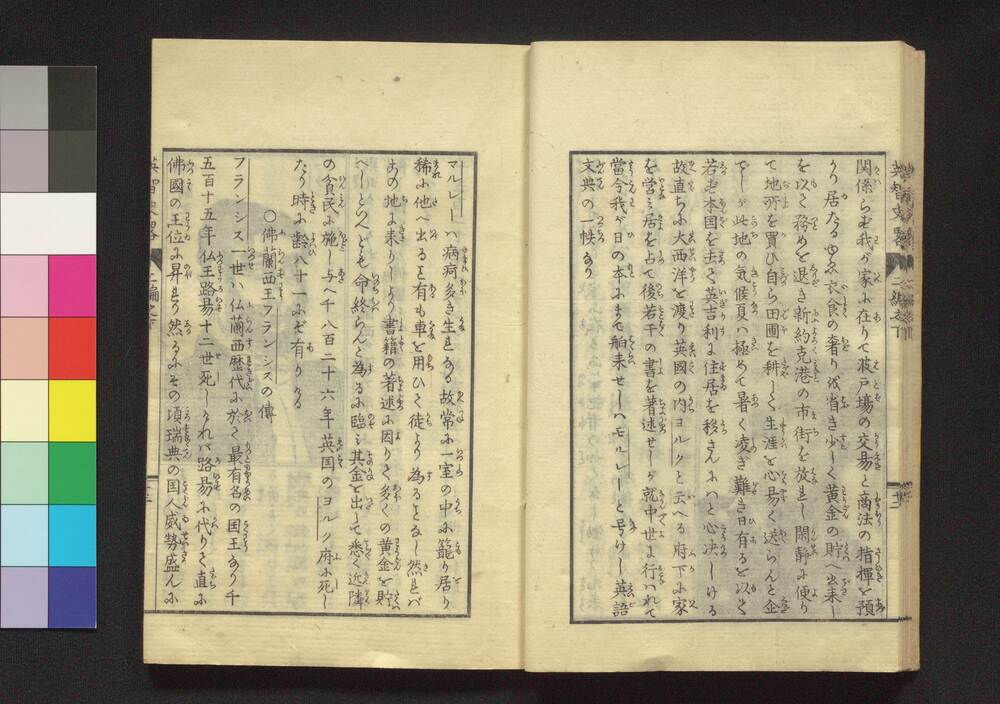 関係らせ我が家に在りて波戸場の交易と商法の指揮を預
かり居たるゆゑ衣食の奢りを省き少しく黄金の貯へ出来し
を以て務めを退き新約克港の市街を放れし閑静に便り
て地所を買ひ自ら田圃を耕して生涯を心易く送らんと企
てしが此地の気候夏は極めて暑く凌ぎ難き日有るを以て
若かず本国を去て英吉利に住居を移さんにはと心決しける
故直ちに大西洋を渡り英國の内ヨルクと云へる府下に家
を営み居を占て後若干の書を著述せしが就中世に行はれて
當今我が日の本にまで舶来せしはモルレーと号けし英語
文典の一帙なり
マルレーは病疴多き生れなる故常に一室の中に籠り居り
稀に他へ出るを有も車を用ひて徒より為るとなし然れば
この地に来りしより書籍の著述に因りて多くの黄金を貯
へしといへども命終らんと為るに臨み其金を出して悉く近隣
の貧民に施し与へ千八百二十六年英国のヨルク府に死し
たり時に齢八十一にぞ有りける
○佛蘭西王フランシスの傳
フランシス一世は仏蘭西歴代に於て最有名の国王なり千
五百十五年仏王路易十二世死しければ路易に代りて直に
佛國の王位に昇れり然るにその頃瑞典の国人威勢盛んに
英智史略 二編之下